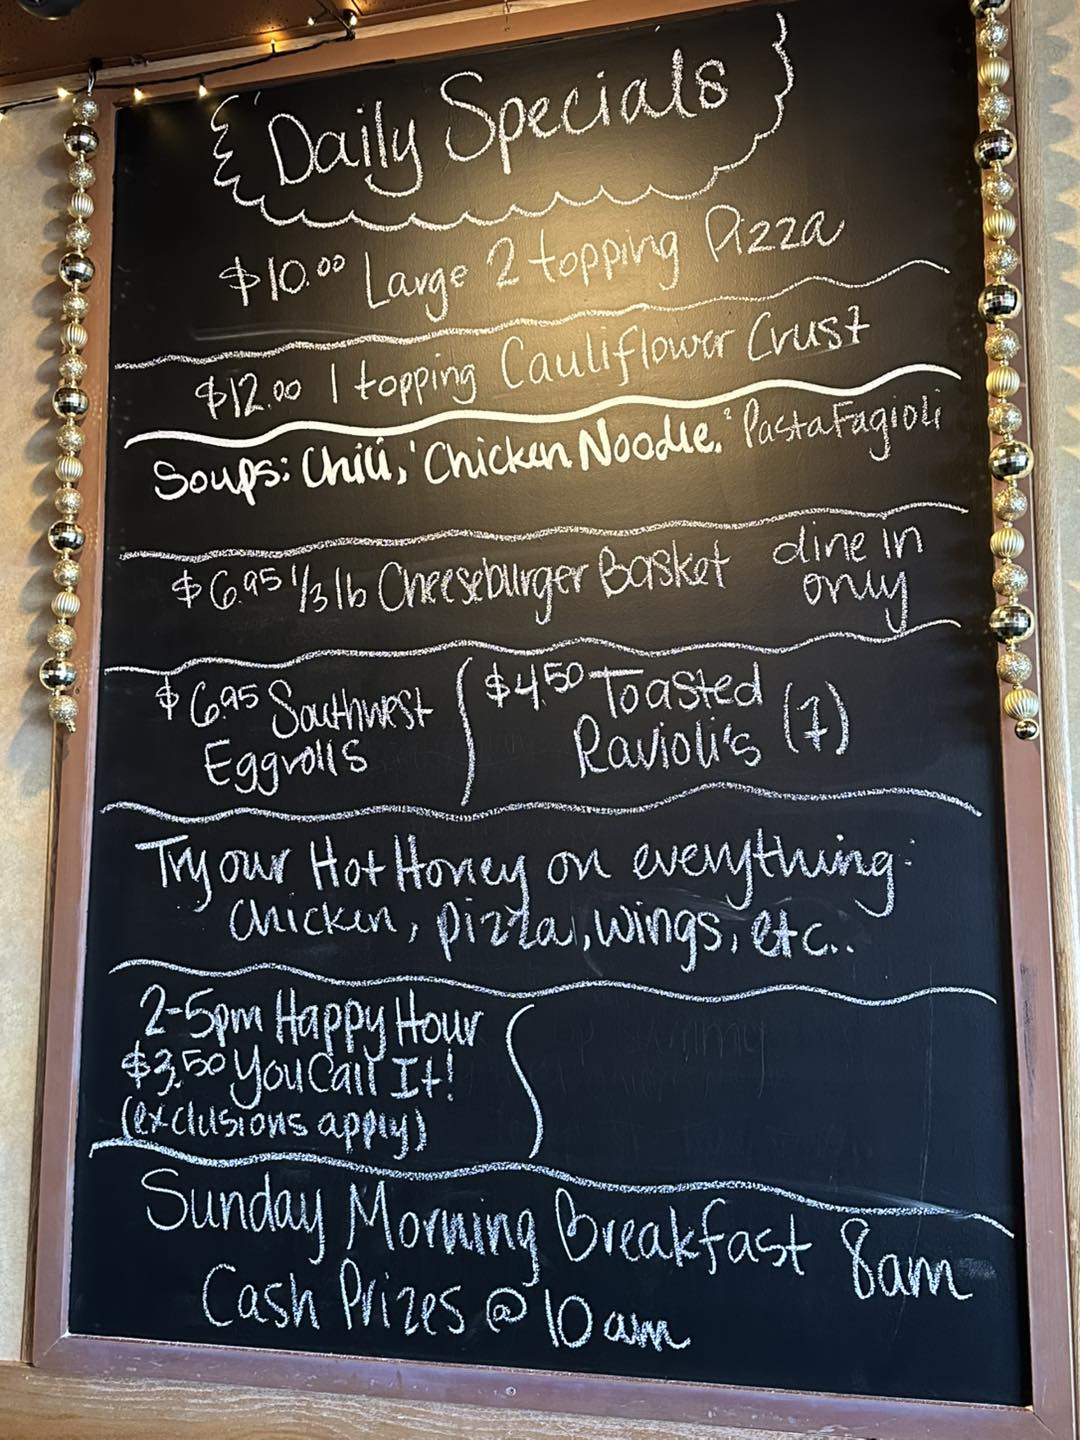 Daily Specials
$10.00 Large 2 topping Pizza
$12.00 1 topping Cauliflower Crust
Soups: Chili, Chicken Noodle, Pasta Fagioli
$6.95 1/3 lb Cheeseburger Basket dine in only
$6.95 Southwest Eggrolls
$4.50 Toasted Ravioli's (7)
Try our Hot Honey on everything:
Chicken, pizza, wings, etc..
2-5pm Happy Hour
$3.50 You Call It!
(exclusions apply)
Sunday Morning Breakfast 8am
Cash Prizes @ 10am